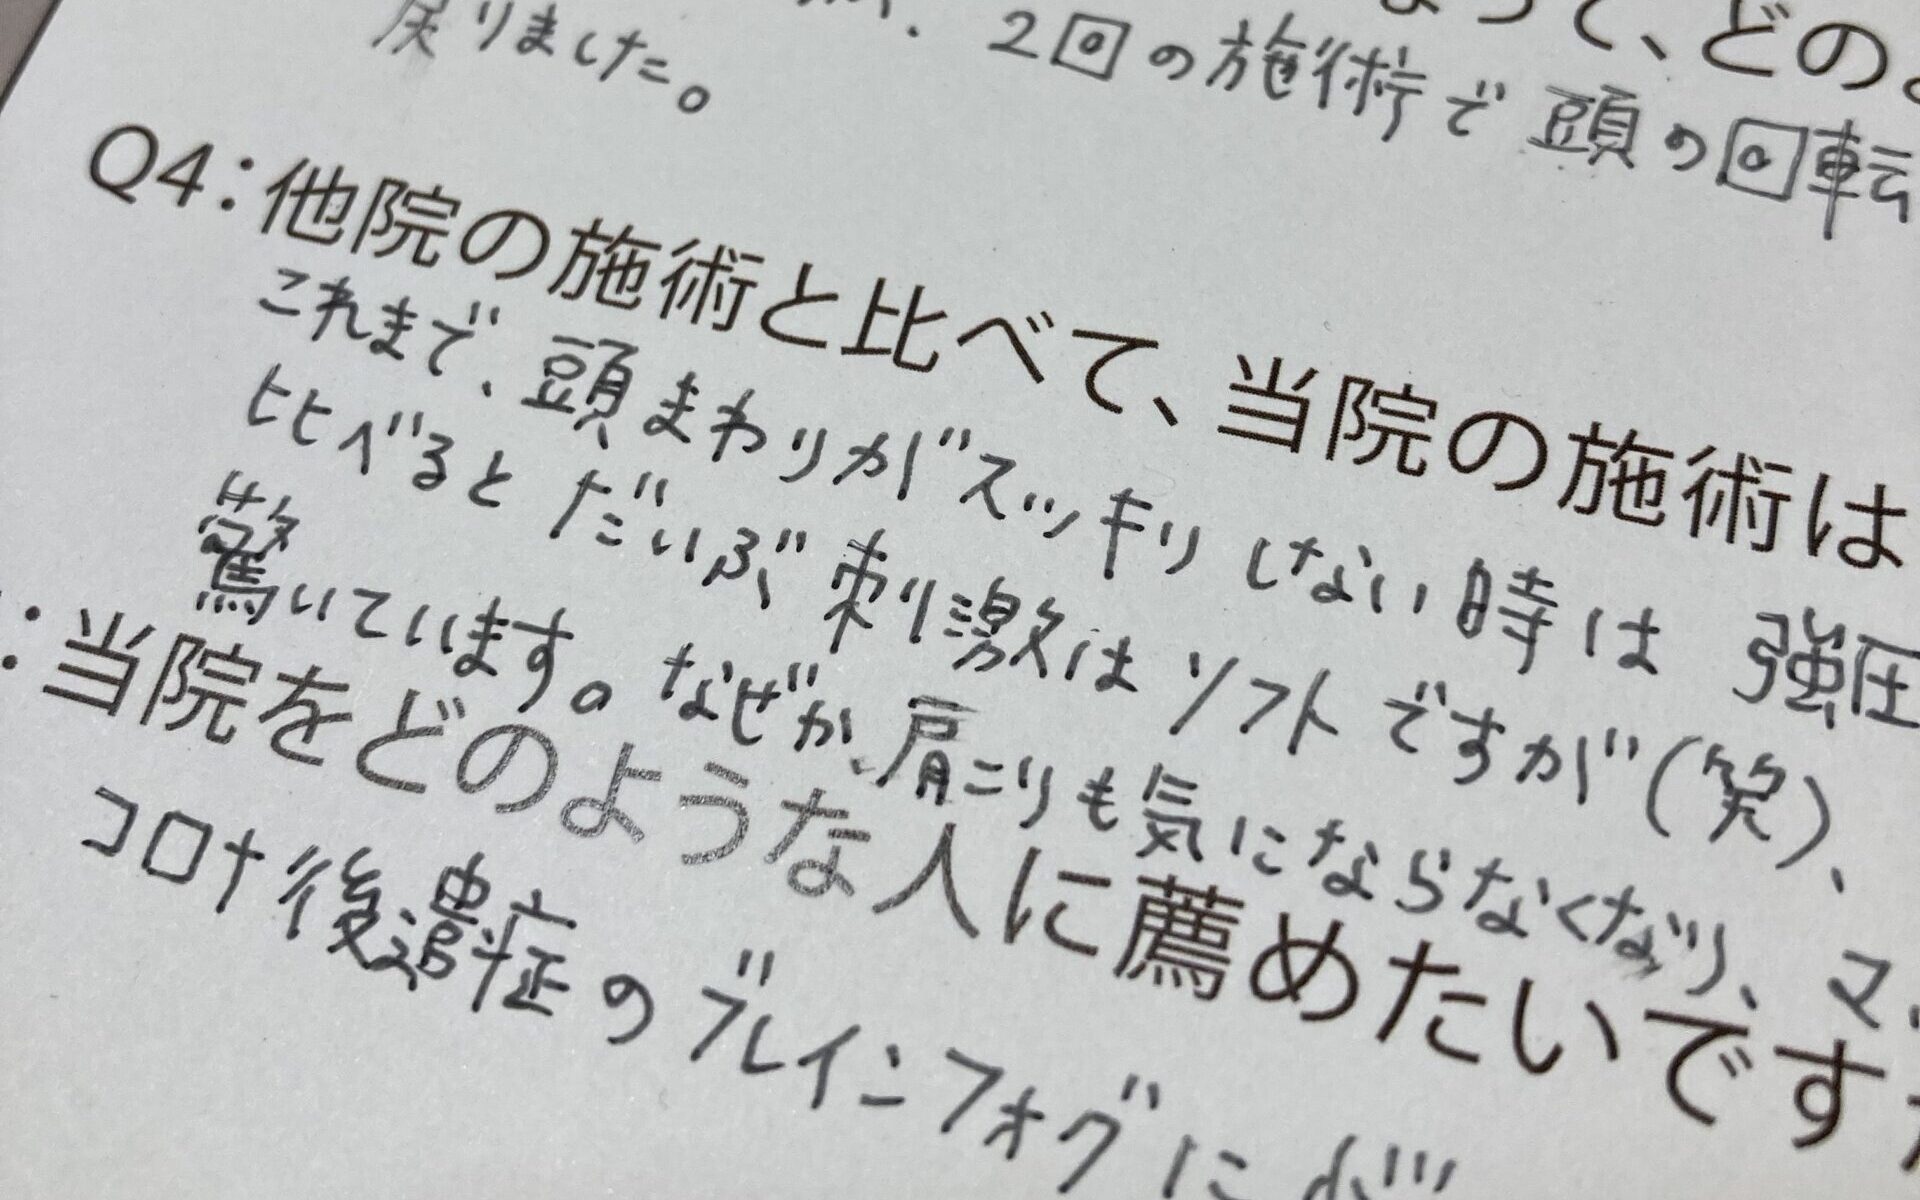 って、どの
2回の施術で頭の回転
戻りました。
Q4:他院の施術と比べて、当院の施術は
これまで、頭まわりがスッキリしない時は強圧
比べるとだいぶ刺激はソフトですが(笑)、
驚いています。なぜか、肩こりも気にならなくなり、マ
:当院をどのような人に薦めたいです
コロナ後遺症のブレインフォグに